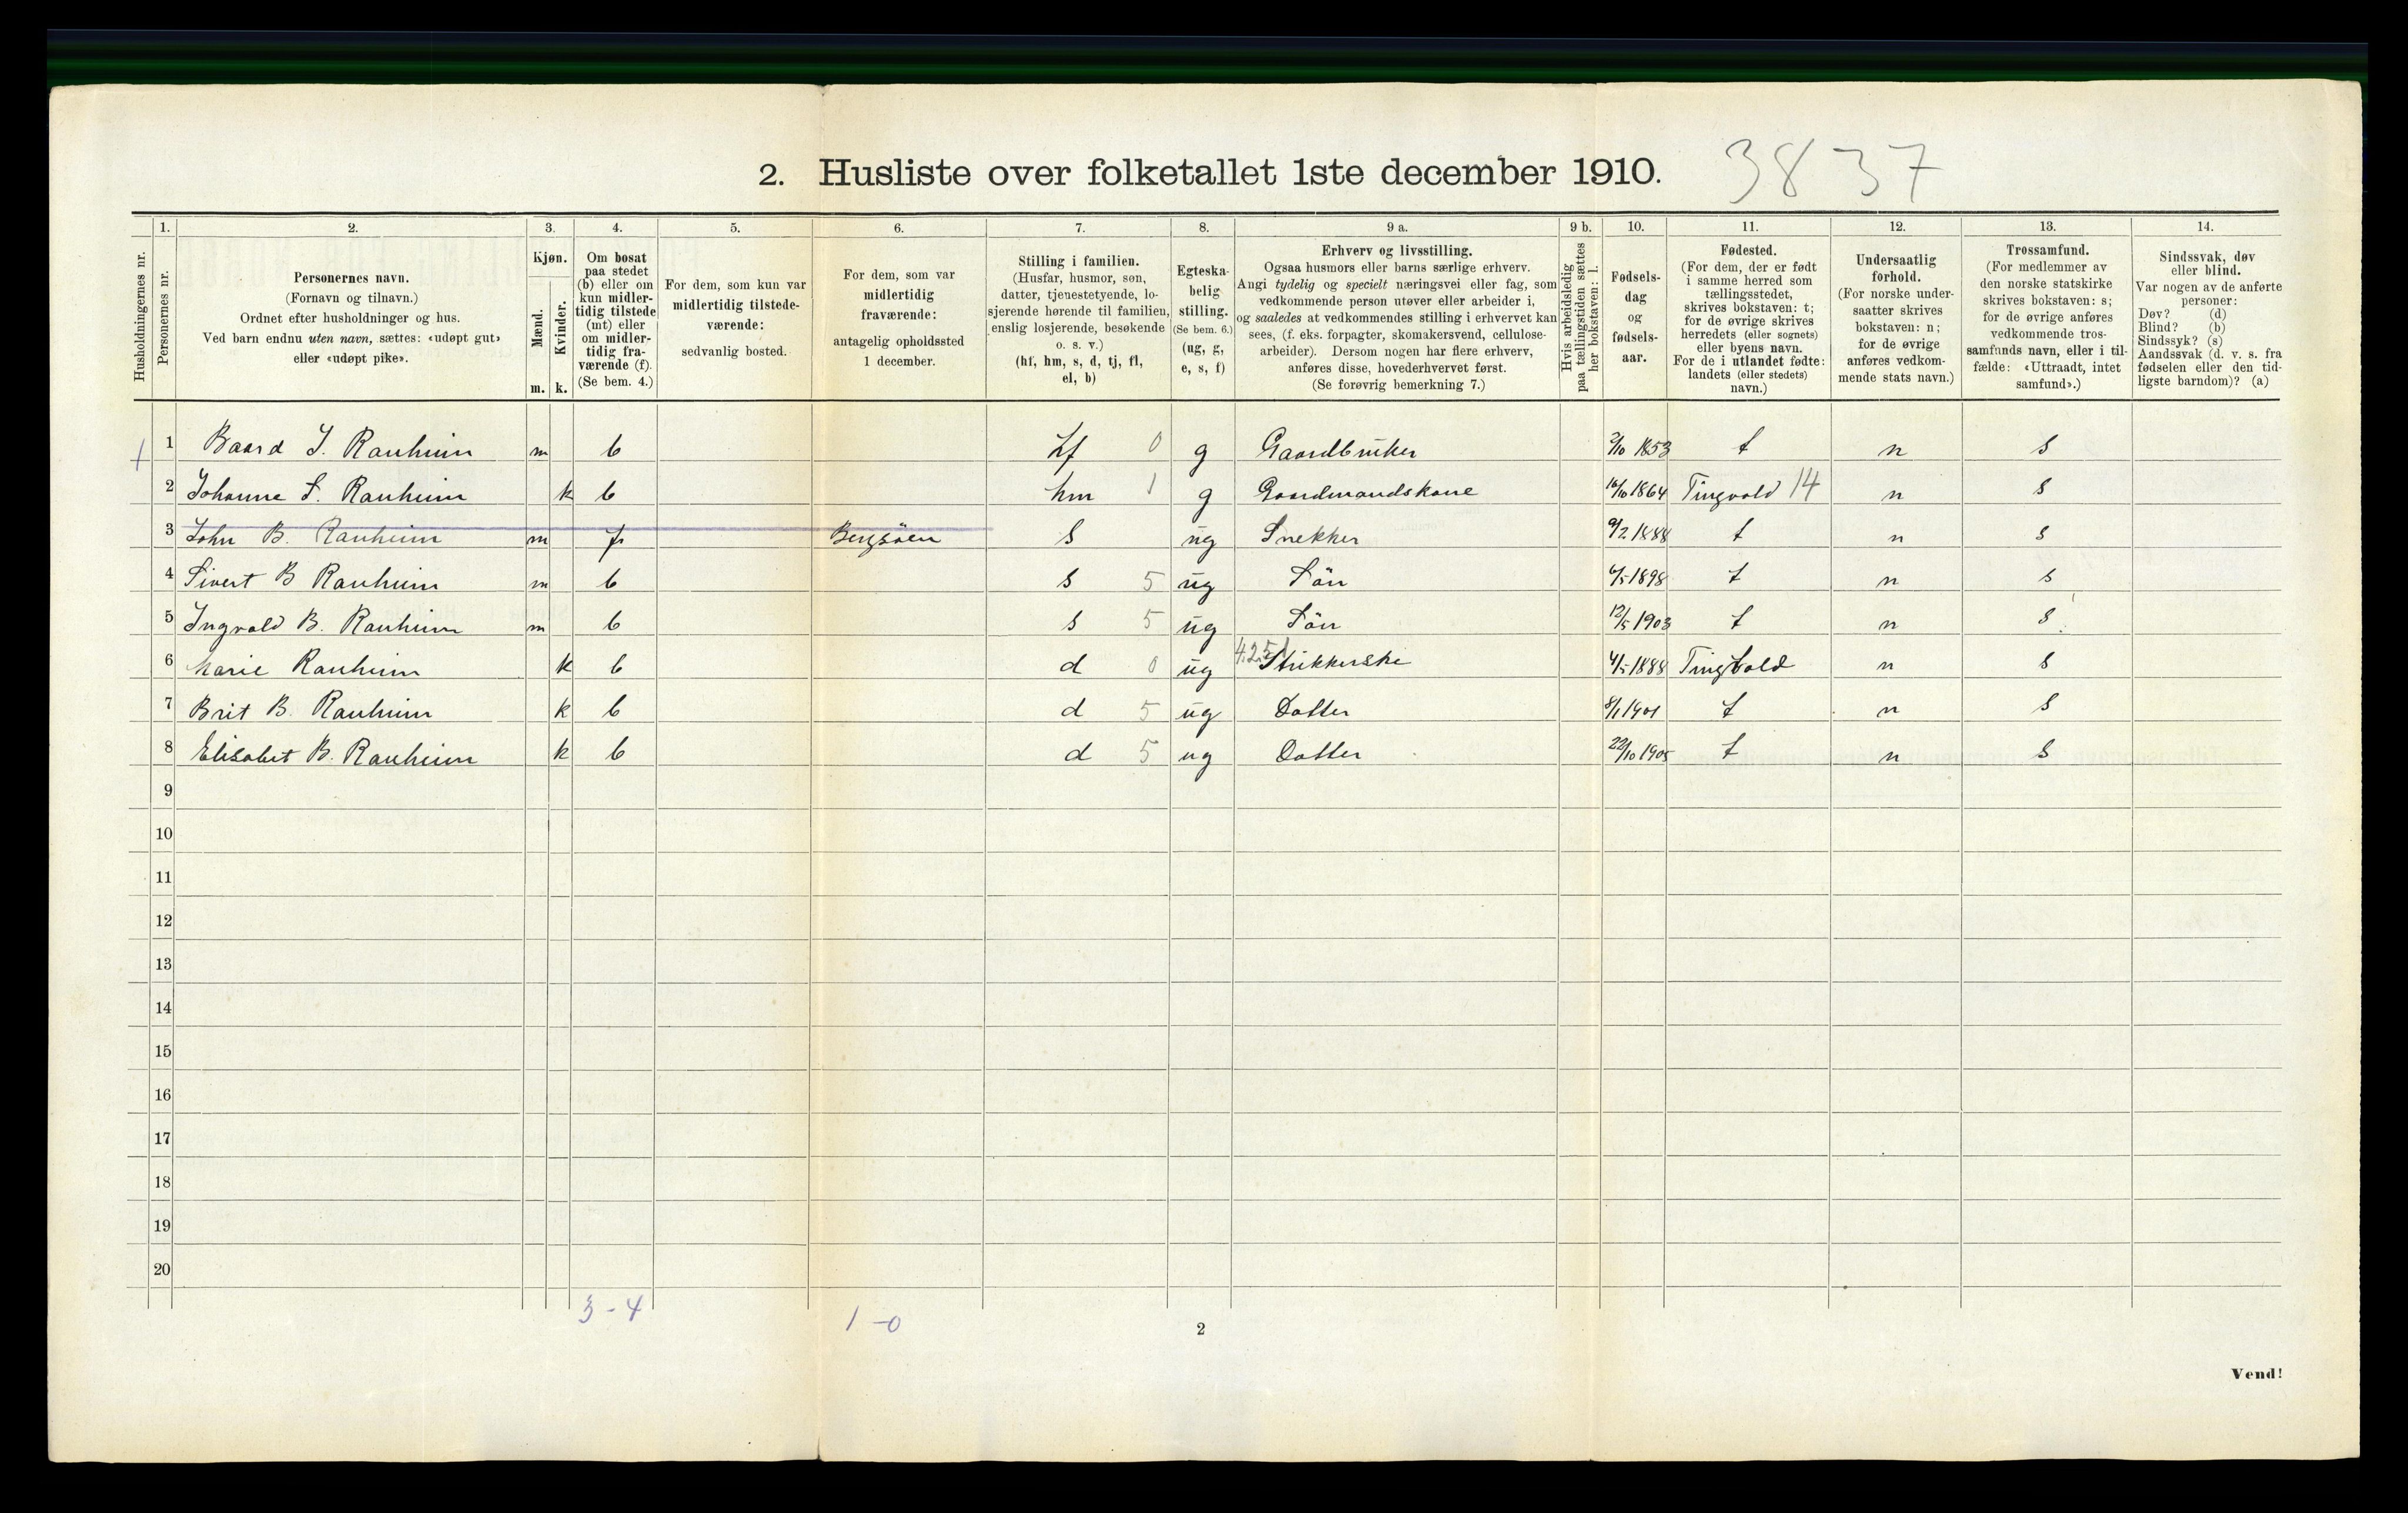 2. Husliste over folketallet 1ste december 1910. 3837
Husholdningernes nr.
1.
Personernes nr.
2.
Personernes navn.
(Fornavn og tilnavn.)
Ordnet efter husholdninger og hus.
Ved barn endnu uten navn, sættes: «udøpt gut»
eller «udøpt pike».
3.
Kjøn.
Mænd.
m.
Kvinder.
k.
4.
Om bosat
paa stedet
(b) eller om
kun midler-
tidig tilstede
(mt) eller
om midler-
tidig fra-
værende (f).
(Se bem. 4.)
5.
For dem, som kun var
midlertidig tilstede-
værende:
sedvanlig bosted.
6.
For dem, som var
midlertidig
fraværende:
antagelig opholdssted
1 december.
7.
Stilling i familien.
(Husfar, husmor, søn,
datter, tjenestetyende, lo-
sjerende hørende til familien,
enslig losjerende, besøkende
o. s. v.)
(hf, hm, s, d, tj, fl,
el, b)
8.
Egteska-
belig
stilling.
(Se bem. 6.)
(ug, g,
e, s, f)
9 a.
Erhverv og livsstilling.
Ogsaa husmors eller barns særlige erhverv.
Angi tydelig og specielt næringsvei eller fag, som
vedkommende person utøver eller arbeider i,
og saaledes at vedkommendes stilling i erhvervet kan
sees, (f. eks. forpagter, skomakersvend, cellulose-
arbeider). Dersom nogen har flere erhverv,
anføres disse, hovederhvervet først.
(Se forøvrig bemerkning 7.)
9 b.
Hvis arbeidsledig
paa tællingstiden sættes
her bokstaven: l.
10.
Fødsels-
dag
og
fødsels-
aar.
11.
Fødested.
(For dem, der er født
i samme herred som
tællingsstedet,
skrives bokstaven: t;
for de øvrige skrives
herredets (eller sognets)
eller byens navn.
For de i utlandet fødte:
landets (eller stedets)
navn.)
12.
Undersaatlig
forhold.
(For norske under-
saatter skrives
bokstaven: n;
for de øvrige
anføres vedkom-
mende stats navn.)
13.
Trossamfund.
(For medlemmer av
den norske statskirke
skrives bokstaven: s;
for de øvrige anføres
vedkommende tros-
samfunds navn, eller i til-
fælde: «Uttraadt, intet
samfund».)
14.
Sindssvak, døv
eller blind.
Var nogen av de anførte
personer:
Døv? (d)
Blind? (b)
Sindssyk? (s)
Aandssvak (d. v. s. fra
fødselen eller den tid-
ligste barndom)? (a)
1 1 Baard I. Ranheim m b hf 0 g Gaardbruker 2/10 1853 t n s
2 Johanne S. Ranheim k b hm 1 g Gaardmandskone 16/10 1864 Tingvold 14 n s
3 John B. Ranheim m f Bergsöen s ug Snekker 9/2 1888 t n s
4 Sivert B Ranheim m b s 5 ug Sön 6/5 1898 t n s
5 Ingvald B. Ranheim m b s 5 ug Sön 12/5 1903 t n s
6 Marie Ranheim k b d 0 ug 4.2.51 Strikkerske 4/5 1888 Tingvold n s
7 Brit B. Ranheim k b d 5 ug Datter 8/1 1901 t n s
8 Elisabet B. Ranheim k b d 5 ug Datter 22/10 1905 t n s
9
10
11
12
13
14
15
16
17
18
19
20
3 - 4 1 - 0
2
Vend!